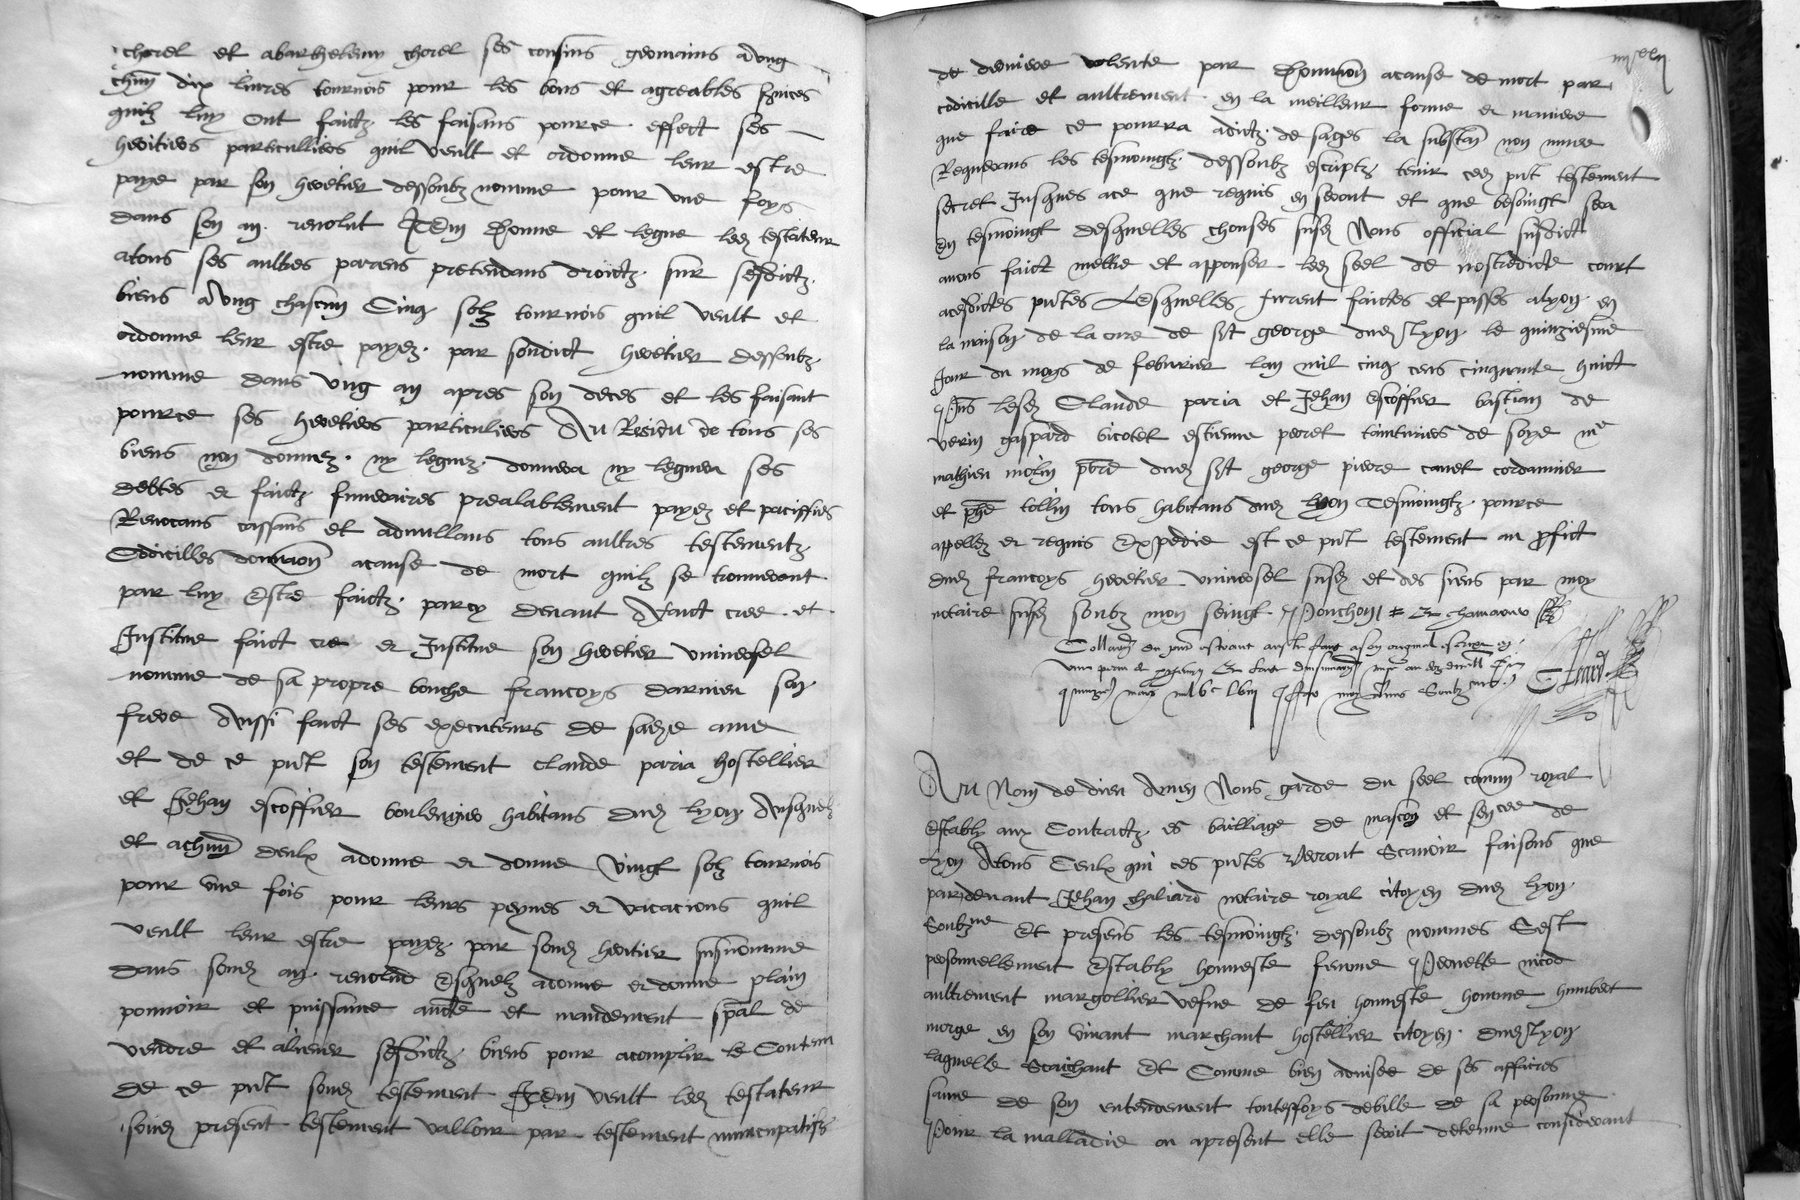 chorel et abarthelemy chorel ses cousins germains a ung
chun dix livres tournois pour les bons et agreables services
quilz luy ont faictz les faisans pource effect ses
heritiers particulliers quil veult et ordonne leur estre
paye par son heretier dessoubz nomme pour une foys
dans son an revolut Item donne et legue led testateur
atous ses aultres parens pretendans droictz sur sesdictz
biens a ung chascun Cinq solz tournois quil veult et
ordonne leur estre payez par sondict heretier dessoubz
nomme dans ung an apres son deces et les faisant
pource ses heretiers particuliers Au Residu de tous ses
biens non donnez ny leguez donnera ny leguera ses
debtes et faictz funeraires prealablement payez et paciffies
Revocans cassans et adnullans tous aultres testementz
Codicilles donnaon acause de mort quilz se trouveront
par luy Estre faictz par cy devant A faict cree et
Institue faict cre et Institue son heretier universel
nomme de sa propre bouche francoys darnieu son
frere Aussi faict ses executeurs de sad ame
et de ce pnt son testement claude paria hostellier
et Jehan escoffier boulengier habitans dud lyon Ausquelz
et achun deulx adonne et donne vingt solz tournois
pour une fois pour leurs peynes et vacacions quil
veult leur estre payez par soned heritier susnomme
dans soned an revolud Esquelz adonne et donne plain
pouvoir et puissance aucte et mandement spal de
vendre et aliener sesdictz biens pour acomplir le Contenu
de ce pnt soned testement Item veult led testateur
soned present testement valloir par testement nuncupatifz
de derniere volente par donnaon acause de mort par
codicille et aultrement en la meilleur forme et maniere
que faire ce pourra adictz de sages la substan non muee
Requerans les tesmoingtz dessoubz escriptz tenir ced pnt testement
secret Jusques ace que requis en seront et que besoingt sera
En tesmoingt desquelles chouses susd Nous official susdict
avons faict mettre et apposer led seel de nostredicte court
acesdictes pntes Lesquelles furent faictes et passes alyon en
la maison de la cure de sct george dud lyon le quinziesme
Jour du moys de febvrier lan mil cinq cens cinquante huict
Pns lesd Claude paria et Jehan escoffier bastian de
verin gaspard bicotet estienne perret tainturier de soye me
mathieu molin pbre dud sct george pierre canet cordannier
et phe tollin tous habitans dud lyon Tesmoingtz pource
appellez et requis Expedie est ce pnt testement au proffict
dud francoys heretier universel susd et des siens par moy
notaire susd soubz mon seingt Ponchon

Au Nom de dieu Amen Nous garde du seel commun royal
Estably aux Contractz es bailliage de mascon et sencee de
Lyon Atous Ceulx qui ces pntes verront Scavoir faisons que
pardevant Jehan chaliard notaire royal citoyen dud lyon
Soubzne Et presens les tesmoingtz dessoubz nommes Cest
personnellement Estably honneste femme Pernette nicod
aultrement margollier vefve de feu honneste homme humbert
morge en son vivant marchant hostellier citoyen dud lyon
laquelle Saichant Et Comme bien advisee de ses affaires
saine de son entendement touteffoys debille de sa personne
Pour la malladie ou apresent elle seroit detenue considerant